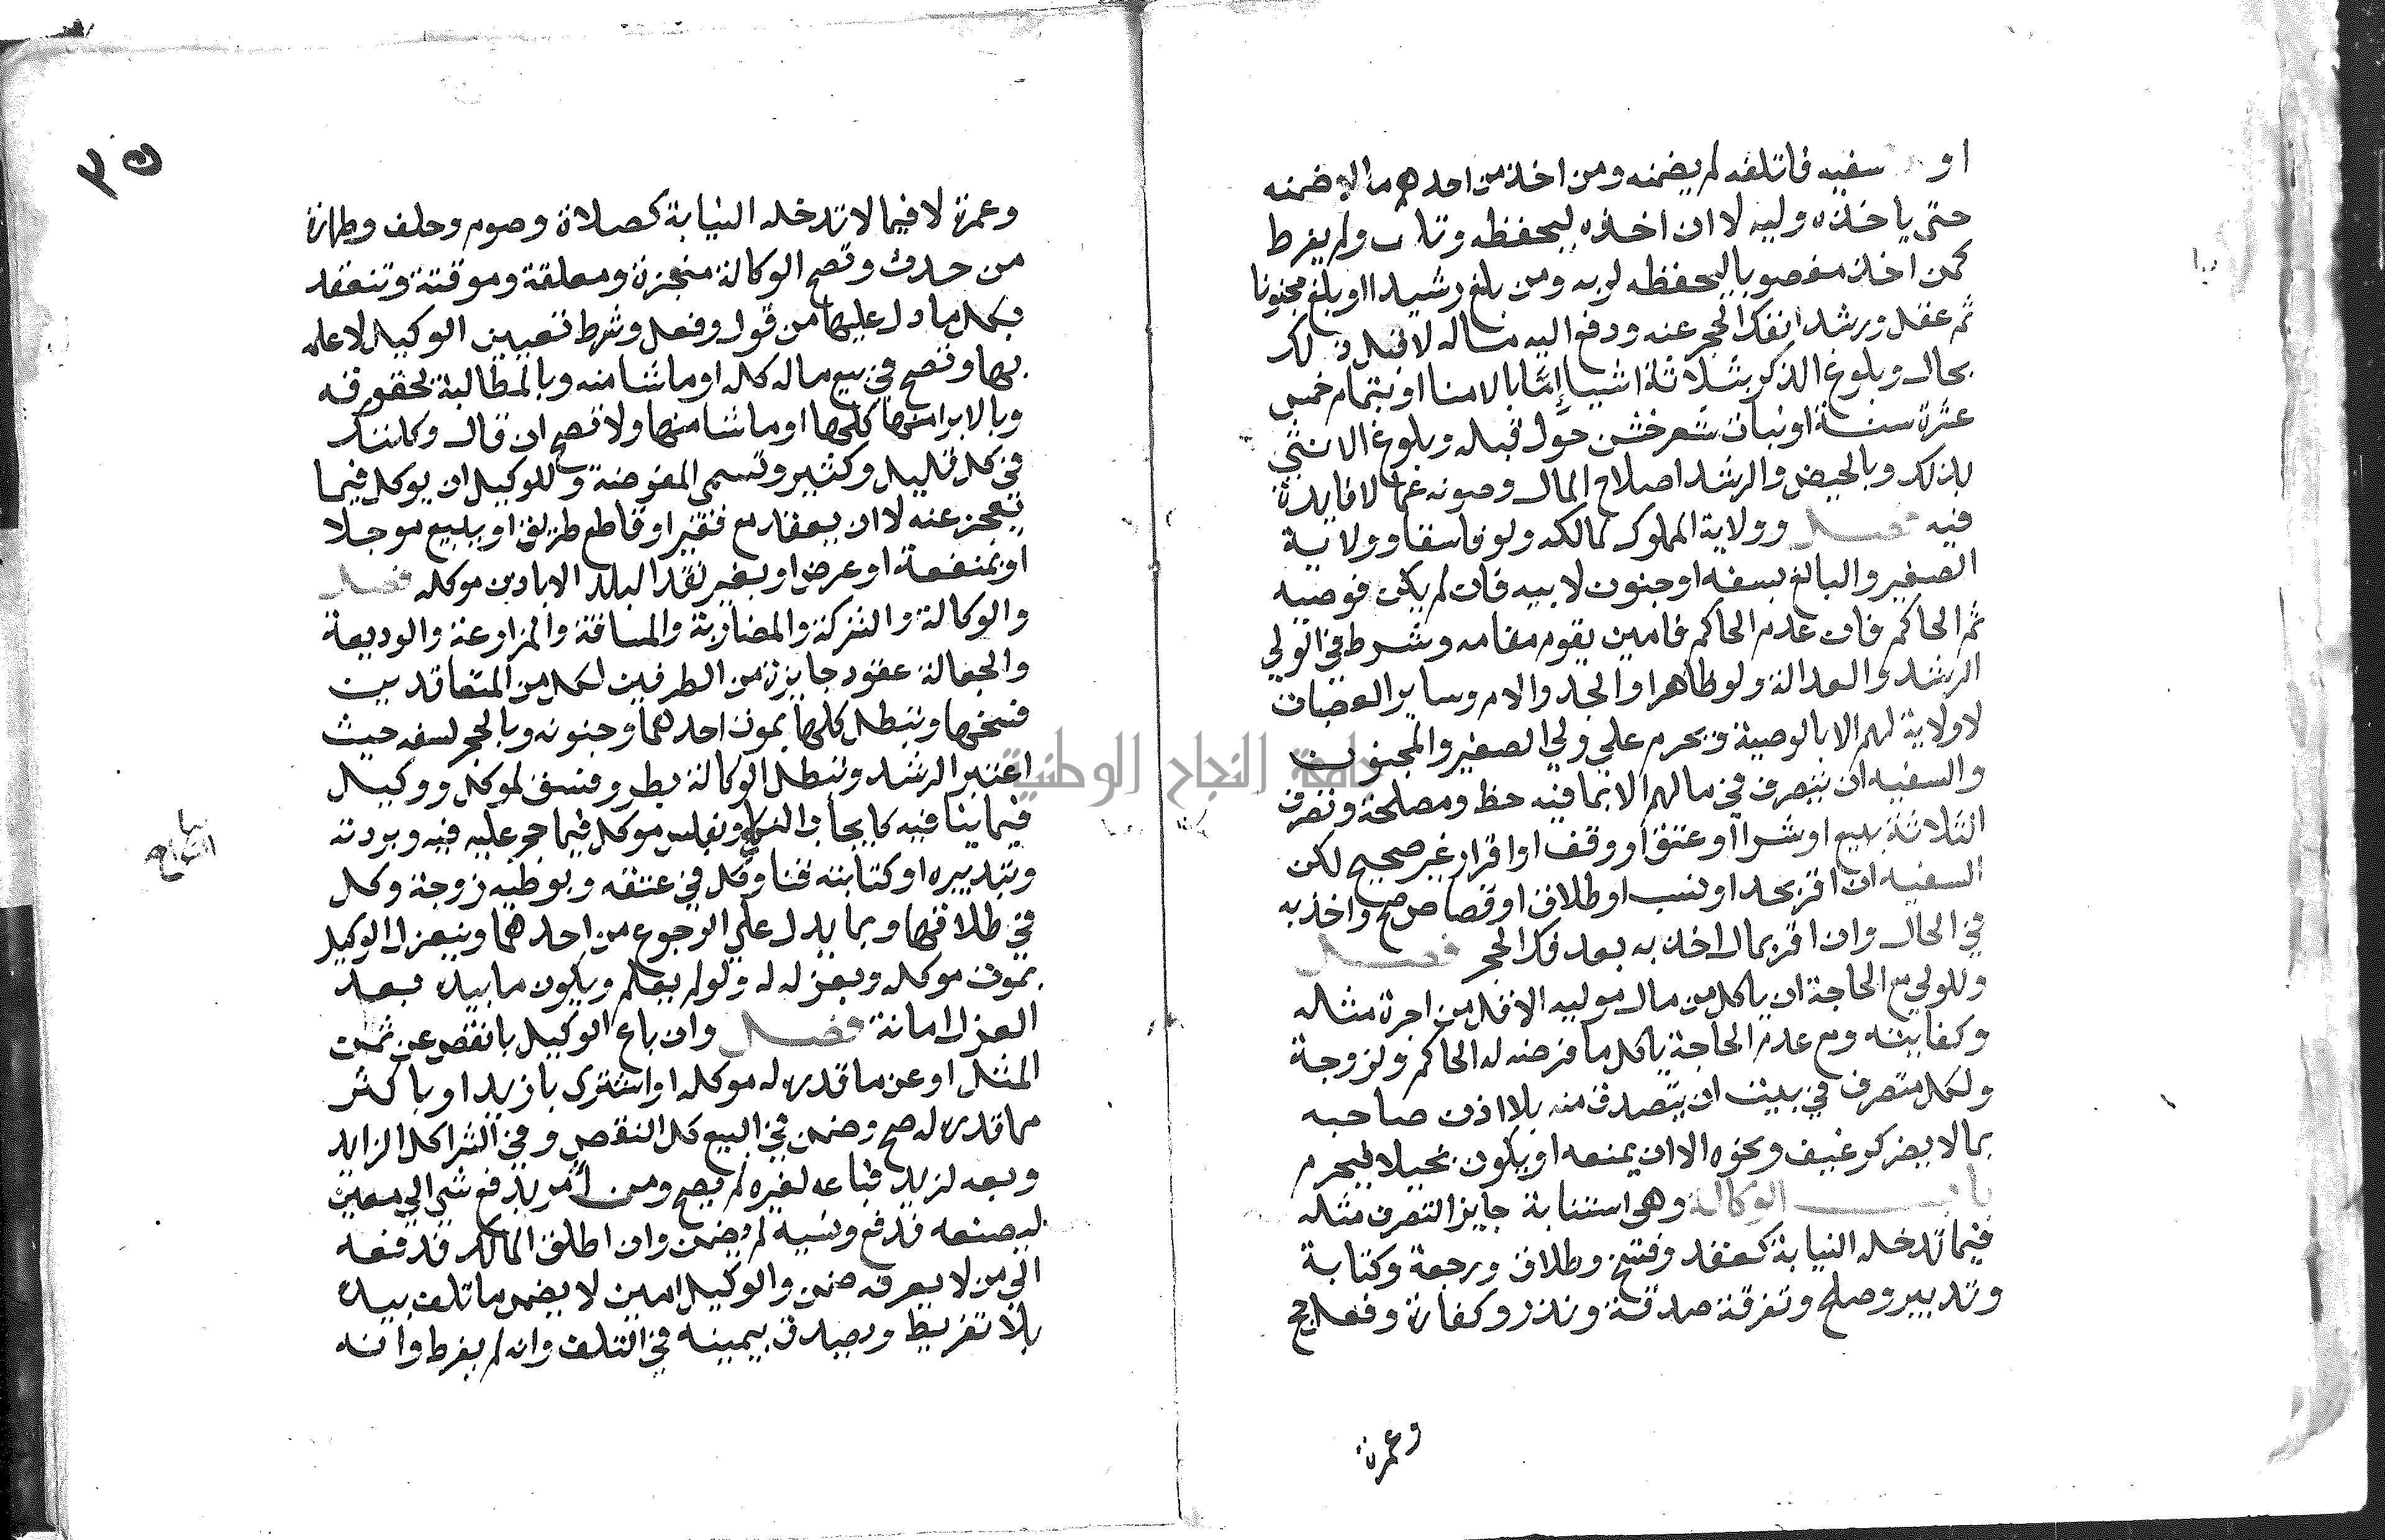 او سفيه فاتلفه لم يضمنه ومن اخذ من احدهم مالا ضمنه
حتى ياخذه وليه لا ان اخذه ليحفظه وتلف ولم يفرط
كمن اخذ مغصوبا ليحفظه لربه ومن بلغ رشيدا او بلغ مجنونا
ثم عقل ورشد انفك الحجر عنه ودفع اليه ماله لا قبل ذلك
بحال وبلوغ الذكر بثلاثة اشيا إمَّا بالامنا او بتمام خمس
عشرة سنة او نبات شعر خشن حول قبله وبلوغ الانثى
بذلك وبالحيض والرشد اصلاح المال وصونه عما لا فايدة
فيه فصل وولاية المملوك لمالكه ولو فاسقا وولاية
الصغير والبالغ بسفه او جنون لابيه فان لم يكن فوصيه
ثم الحاكم فان عدم الحاكم فامين يقوم مقامه وشرط في الولي
الرشد والعدالة ولو ظاهرا والجد والام وساير العصبات
لا ولاية لهم الا بالوصية ويحرم علي ولي الصغير والمجنون
والسفيه ان يتصرف في مالهم الا بما فيه حظ ومصلحة وتصرف
الثلاثة ببيع او شرا او عتق او وقف او اقرار غير صحيح لكن
السفيه ان اقر بحد او نسب او طلاق او قصاص صح واخذ به
في الحال وان اقر بمال اخذ به بعد فك الحجر فصل
وللولي مع الحاجة ان ياكل من مال موليه الاقل من اجرة مثله
وكفايته ومع عدم الحاجة ياكل ما فرضه له الحاكم ولزوجة
ولكل متصرف في بيت ان يتصدق منه بلا اذن صاحبه
بما لا يضر كرغيف ونحوه الا ان يمنعه او يكون بخيلا فيحرم
باب الوكالة وهي استنابة جايز التصرف مثله
فيما تدخله النيابة كعقد وفسخ وطلاق ورجعة وكتابة
وتدبير وصلح وتفرقة صدقة ونذر وكفارة وفعل حج
وعمرة
٣٥
وعمرة لا فيما لا تدخله النيابة كصلاة وصوم وحلف وطهارة
من حدث وتصح الوكالة منجزة ومعلقة وموقتة وتنعقد
بكل ما دل عليها من قول وفعل وشرط تعيين الوكيل لا علمه
بها وتصح في بيع ماله كله او ما شا منه وبالمطالبة بحقوقه
وبالابرا منها كلها او ما شا منها ولا تصح ان قال وكلتك
في كل قليل وكثير وتسمى المفوضة وللوكيل ان يوكل فيما
يعجز عنه لا ان يعقد مع فقير او قاطع طريق او يبيع موجلا
او بمنفعة او عرض او بغير نقد البلد الا باذن موكله فصل
والوكالة والشركة والمضاربة والمساقة والمزارعة والوديعة
والجعالة عقود جايزة من الطرفين لكل من المتعاقدين
فسخها وتبطل كلها بموت احدهما وجنونه وبالحجر لسفه حيث
اعتبر الرشد وتبطل الوكالة بطرو فسق لموكل ووكيل
فيما ينافيه كايجاب النكاح وبفلس موكل فيما حجر عليه فيه وبردته
وبتدبيره او كتابته قنا وكل في عتقه وبوطيه زوجة وكل
في طلاقها وبما يدل علي الرجوع من احدهما وينعزل الوكيل
بموت موكله وبعزله له ولو لم يعلم ويكون ما بيده بعد
العزل امانة فصل وان باع الوكيل بانقص عن ثمن
المثل او عن ما قدره له موكله او اشترى بازيد او باكثر
مما قدره له صح وضمن في البيع كل النقص وفي الشرا كل الزايد
وبعه لزيد فباعه لغيره لم يصح ومن امر بدفع شي الي معين
ليصنعه فدفع ونسيه لم يضمن وان اطلق المالك فدفعه
الي من لا يعرفه ضمن والوكيل امين لا يضمن ما تلف بيده
بلا تفريط ويصدق بيمينه في التلف وانه لم يفرط وانه
جامعة النجاح الوطنية